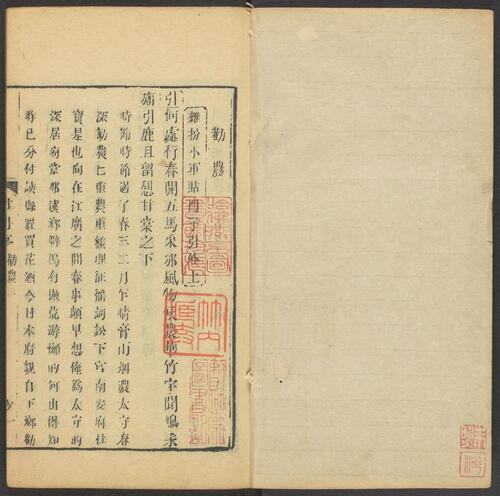 勸農
雜扮小軍貼門子引外上
引何處行春開五馬采邠風物候農華竹宇聞鳩朱
轓引鹿且留憩甘棠之下
時節時節過了春三二月乍晴膏山烟濃太守春
深勸農農重緩理征徭詞訟下官南安府杜
寶是也向在江廣之間春事頗早想俺爲太守的
深居府堂那遠鄉僻塢有拋荒游懶的何由得知
昨已分付該縣置買花酒今日本府親自下鄉勸
牡丹亭 勸農一